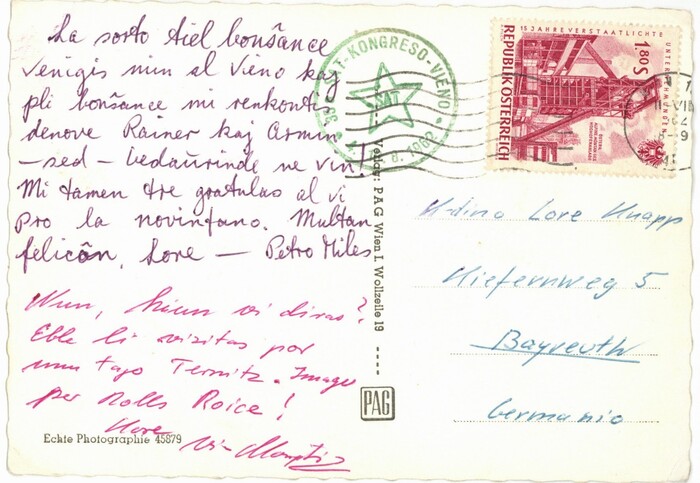 La sorto tiel bonŝance
venigis min al Vieno kaj
pli bonŝance mi renkonti
denove Rainer kaj Armin
— sed — bedaŭrinde ne vin!
Mi tamen tre gratulas al vi
pro la novinfano. Multan
felicôn, Lore — Petro Miles
Nun, kion vi diras?
Eble li vizitas por
unu tago Ternitz. Imagu
per Rolls Roice!
Kore
vi-
Echte Photographie 45879
SAT-KONGRESO-VIENO
SAT
8. 1962
Verlag PAG Wien I. Wollzeile 19
PAG
15 JAHRE VERSTAATLICHTE
UNTERNEHMUNGEN
1.80 S
REPUBLIK ÖSTERREICH
K-dino Lore Knapp
Kiefernweg 5
Bayreuth
Germanio